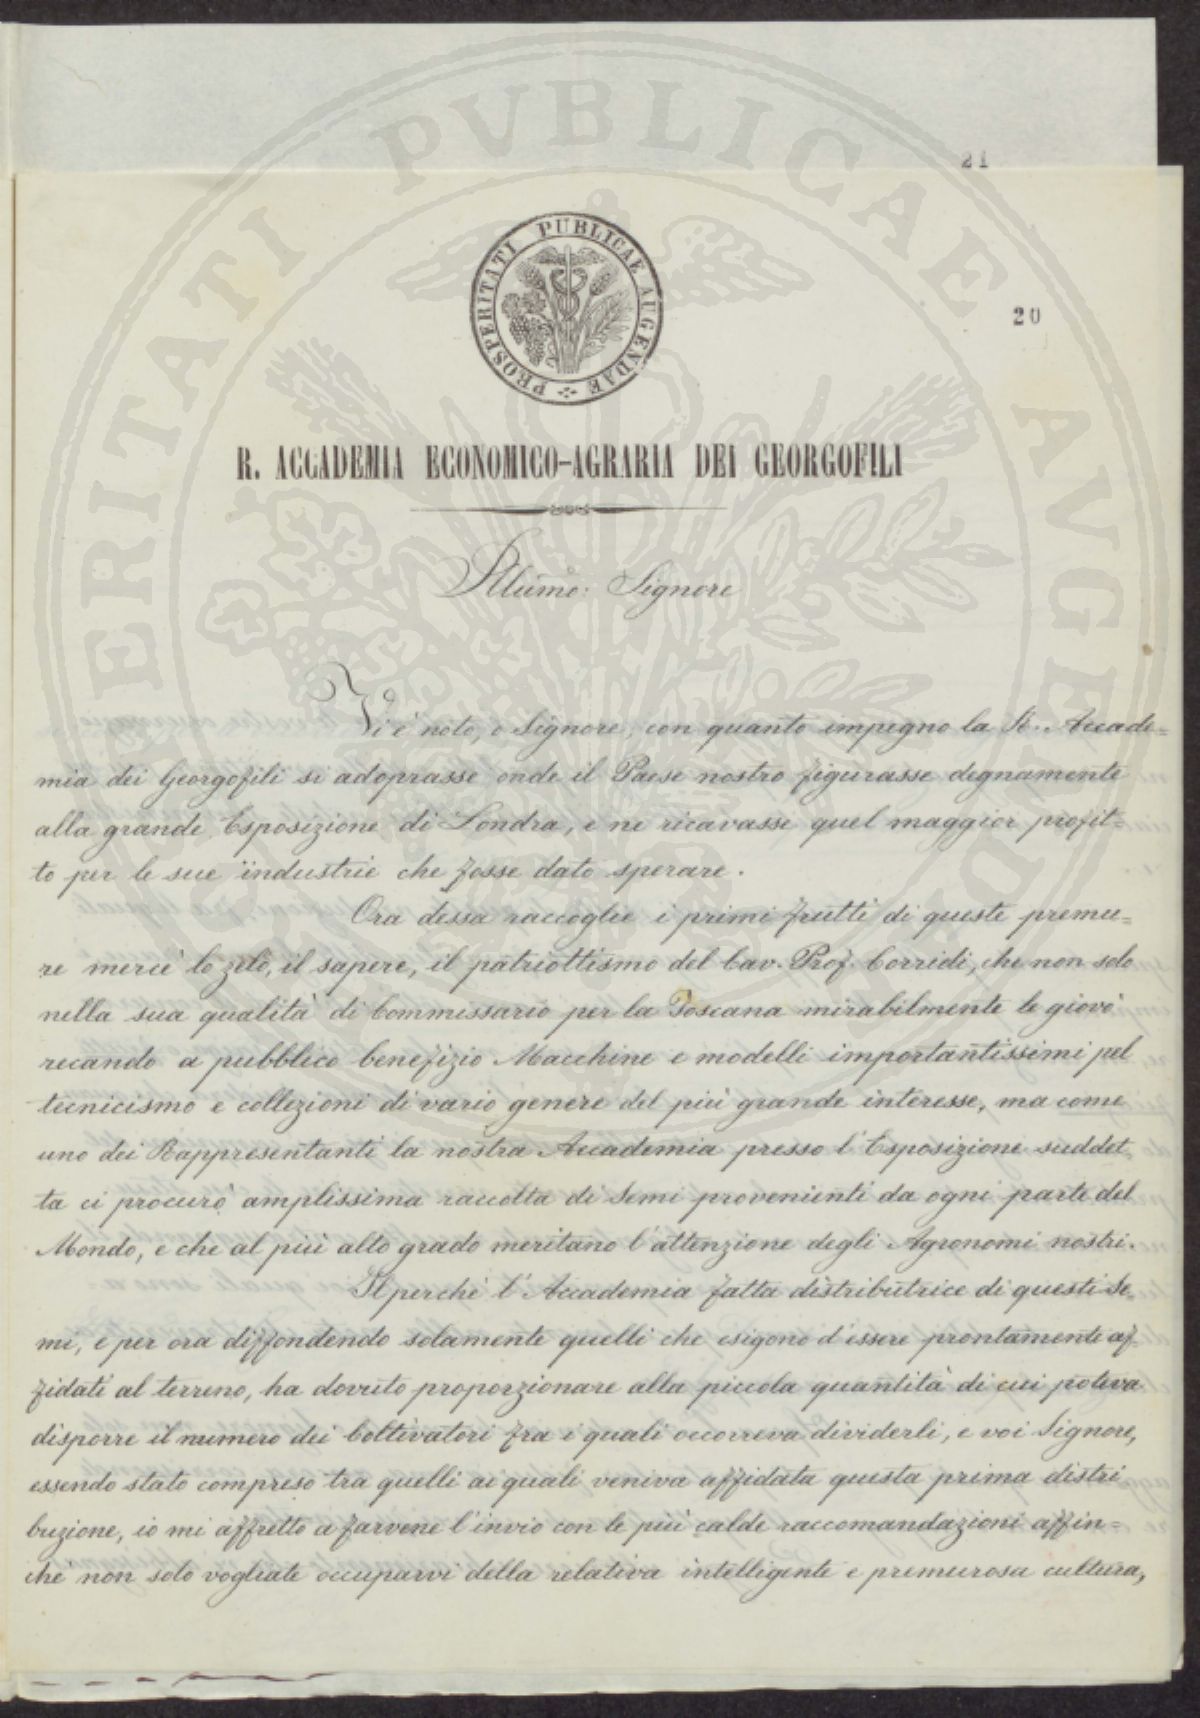 21
PROSPERITATI PUBLICAE AUGENDAE
20
R. ACCADEMIA ECONOMICO-AGRARIA DEI GEORGOFILI
Illumo: Signore
Vi è noto, o Signore, con quanto impegno la R. Accade=
mia dei Georgofili si adoprasse onde il Paese nostro figurasse degnamente
alla grande Esposizione di Londra, e ne ricavasse quel maggior profit=
to per le sue industrie che fosse dato sperare.
Ora dessa raccoglie i primi frutti di queste premu=
re mercè lo zelo, il sapere, il patriottismo del Cav. Prof. Corridi, che non solo
nella sua qualità di Commissario per la Toscana mirabilmente le giovò
recando a pubblico benefizio Macchine e modelli importantissimi pel
tecnicismo e collezioni di vario genere del più grande interesse, ma come
uno dei Rappresentanti la nostra Accademia presso l'Esposizione suddet=
ta ci procurò amplissima raccolta di Semi provenienti da ogni parte del
Mondo, e che al più alto grado meritano l'attenzione degli Agronomi nostri.
Il perchè l'Accademia fatta distributrice di questi Se=
mi, e per ora diffondendo solamente quelli che esigono d'essere prontamente af=
fidati al terreno, ha dovuto proporzionare alla piccola quantità di cui poteva
disporre il numero dei Coltivatori fra i quali occorreva dividerli, e voi Signore,
essendo stato compreso tra quelli ai quali veniva affidata questa prima distri
buzione, io mi affretto a farvene l'invio con le più calde raccomandazioni affin=
chè non solo vogliate occuparvi della relativa intelligente e premurosa cultura,
PROSPERITATI PVBLICAE AVGENDAE